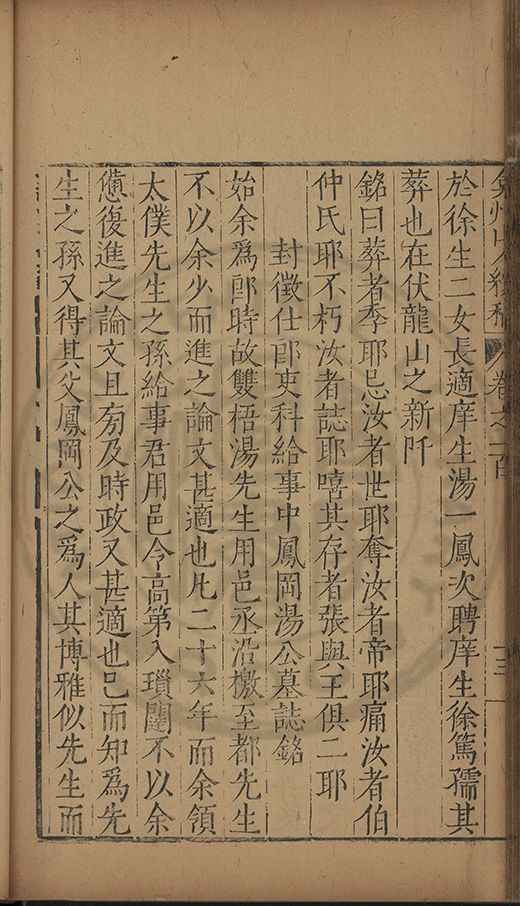 弇州山人續稿 卷之一百 十三
於徐生二女長適庠生湯一鳳次聘庠生徐篤孺其
葬也在伏龍山之新阡
銘曰葬者季耶忌汝者世耶奪汝者帝耶痛汝者伯
仲氏耶不朽汝者誌耶嘻其存者張與王俱二耶
封徵仕郎吏科給事中鳳岡湯公墓誌銘
始余爲郎時故雙梧湯先生用邑丞沿檄至都先生
不以余少而進之論文甚適也凡二十六年而余領
太僕先生之孫給事君用邑令高第入瑣闥不以余
憊復進之論文且旁及時政又甚適也已而知爲先
生之孫又得其父鳳岡公之爲人其博雅似先生而